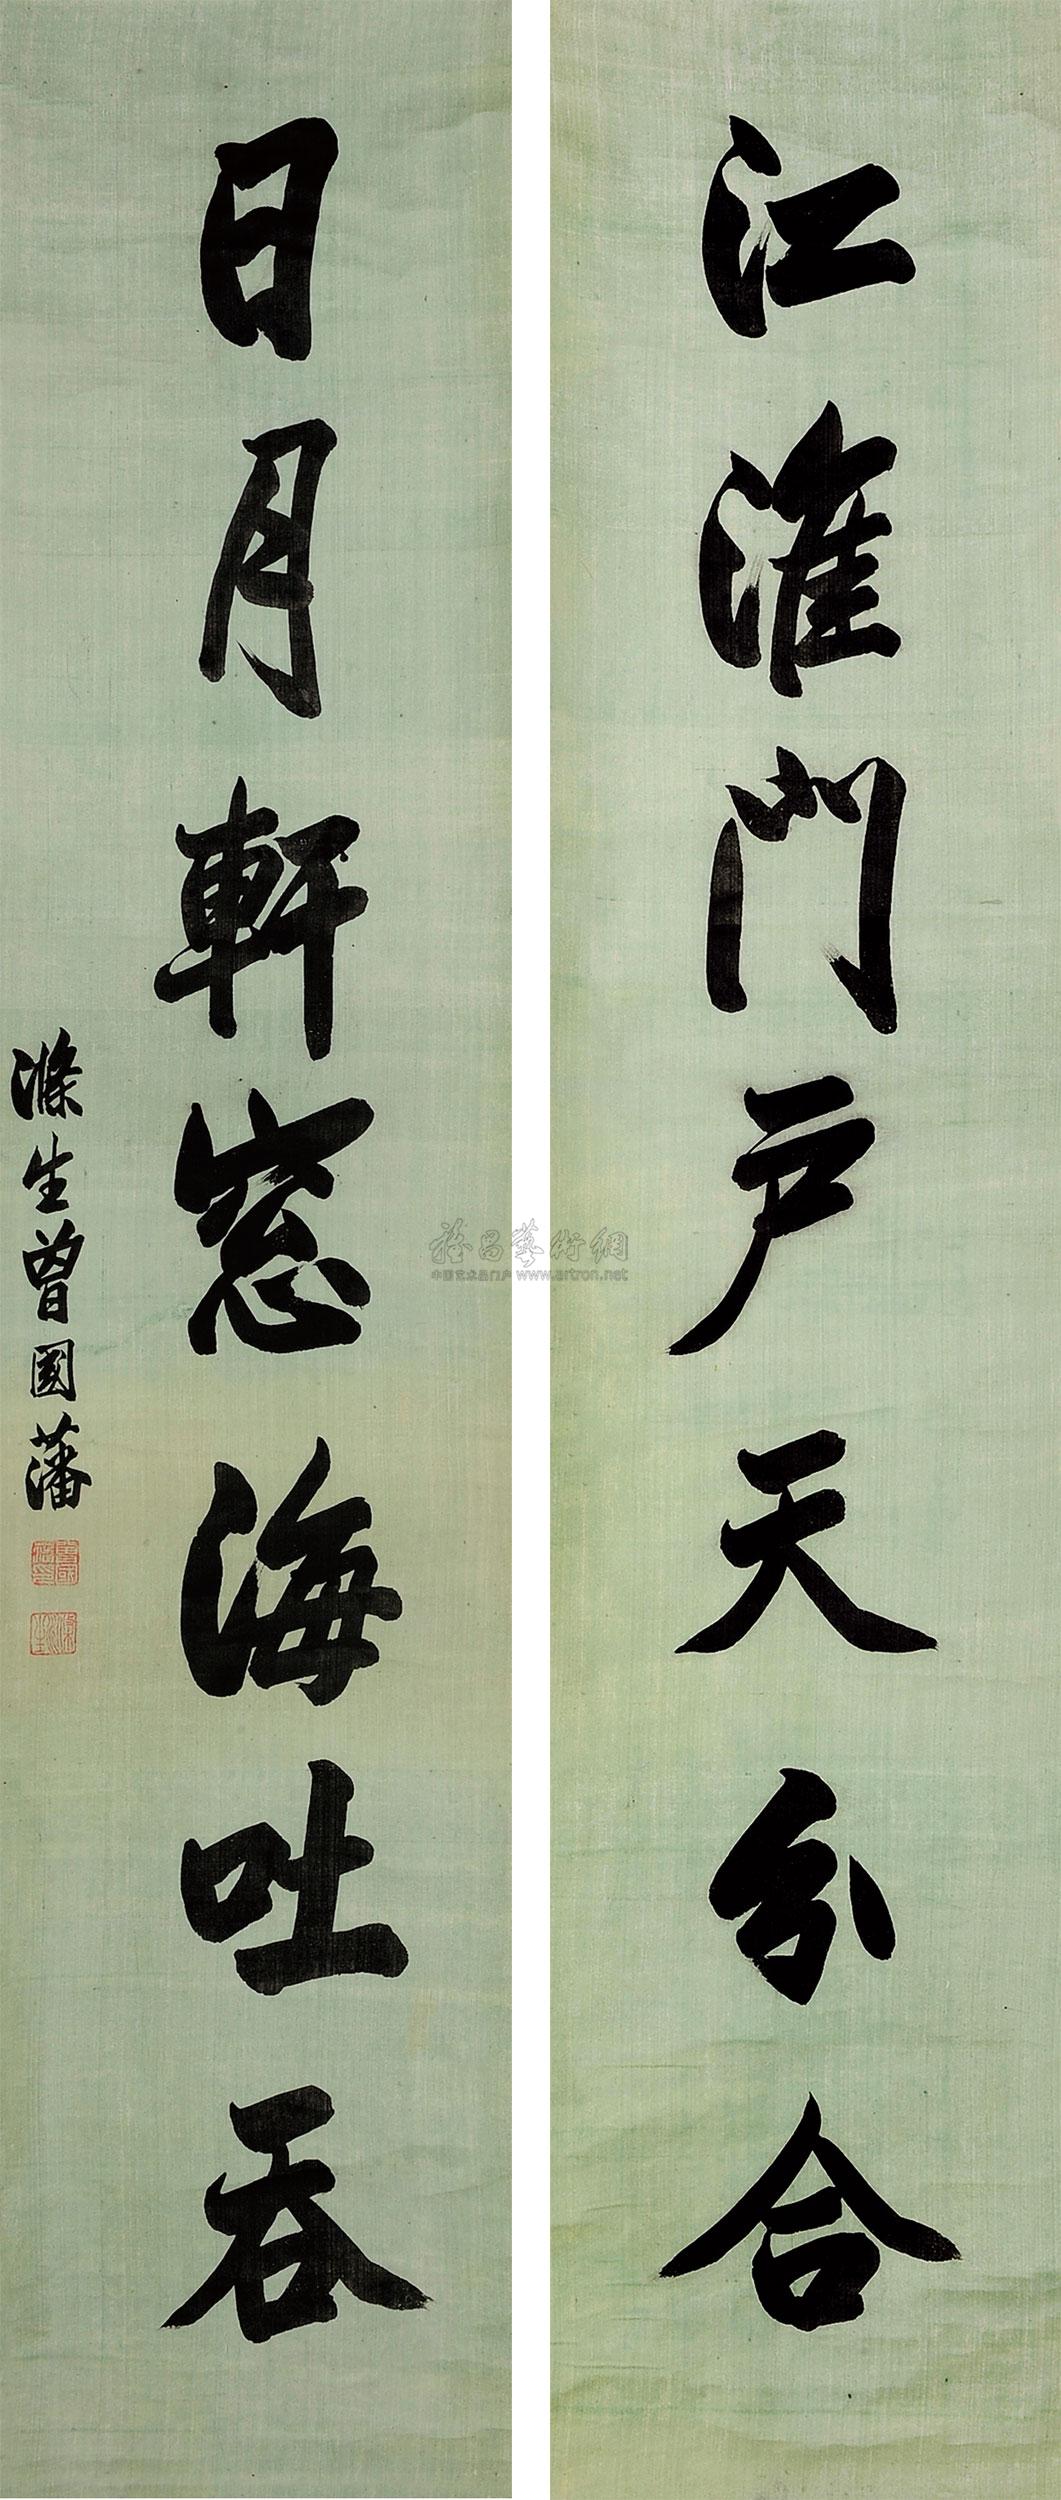 江淮門户天分合
日月軒窓海吐吞
滌生曾國藩
雅昌藝術網
中国艺术品门户 www.artron.net